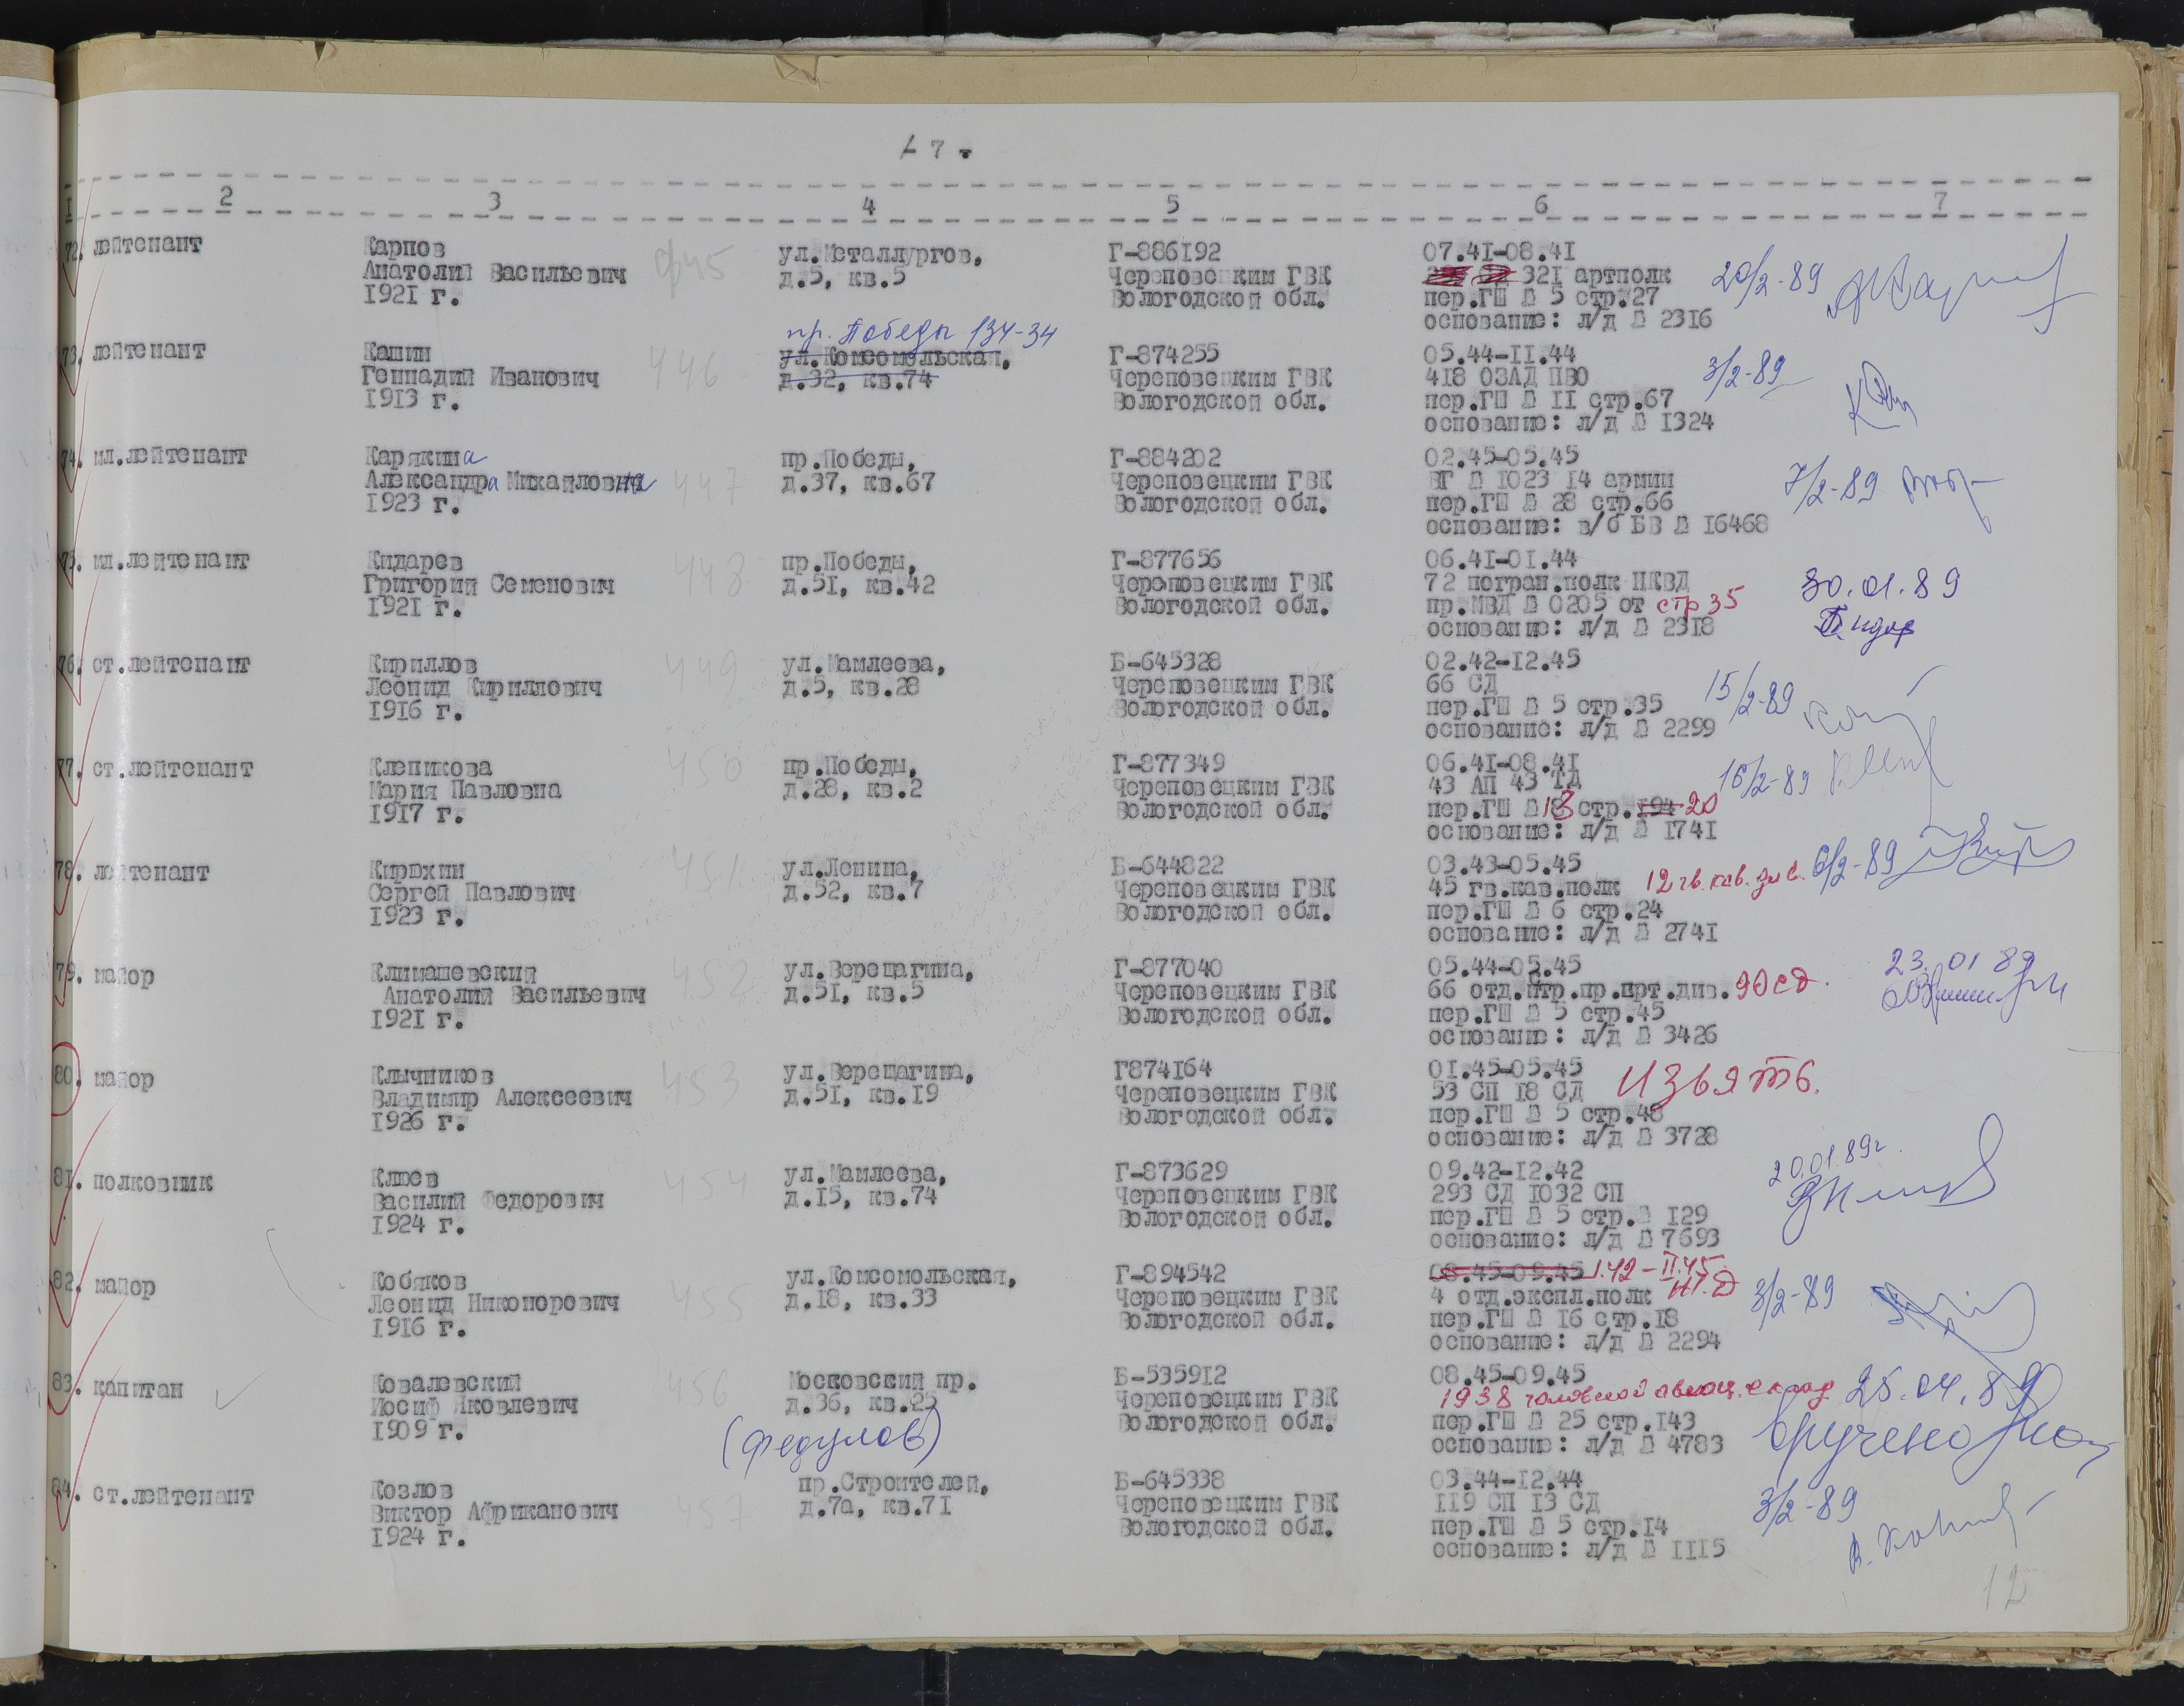 - 7 -
I 2 3 4 5 6 7
72. лейтенант
Карпов
Анатолий Васильевич
1921 г.
445
ул.Металлургов,
д.5, кв.5
Г-886192
Череповецким ГВК
Вологодской обл.
07.41-08.41
321 артполк
пер.ГШ № 5 стр.27
основание: л/д № 2316
20/2-89
73. лейтенант
Кашин
Геннадий Иванович
1913 г.
446
пр. Победы 134-34
ул.Комсомольская,
д.32, кв.74
Г-874255
Череповецким ГВК
Вологодской обл.
05.44-11.44
418 ОЗАД ПВО
пер.ГШ № 11 стр.67
основание: л/д № 1324
3/2-89
74. мл.лейтенант
Карякина
Александра Михайловна
1923 г.
447
пр.Победы,
д.37, кв.67
Г-884202
Череповецким ГВК
Вологодской обл.
02.45-05.45
ВГ № 1023 14 армии
пер.ГШ № 28 стр.66
основание: в/б БВ № 16468
7/2-89
75. мл.лейтенант
Кидарев
Григорий Семенович
1921 г.
448
пр.Победы,
д.51, кв.42
Г-877656
Череповецким ГВК
Вологодской обл.
06.41-01.44
72 погран.полк НКВД
пр.МВД № 0205 от стр 35
основание: л/д № 2318
30.01.89
76. ст.лейтенант
Кириллов
Леонид Кириллович
1916 г.
449
ул.Мамлеева,
д.5, кв.28
Б-645328
Череповецким ГВК
Вологодской обл.
02.42-12.45
66 СД
пер.ГШ № 5 стр.35
основание: л/д № 2299
15/2-89
77. ст.лейтенант
Клепикова
Мария Павловна
1917 г.
450
пр.Победы,
д.28, кв.2
Г-877349
Череповецким ГВК
Вологодской обл.
06.41-08.41
43 АП 43 ТД
пер.ГШ № 13 стр.194 20
основание: л/д № 1741
16/2-89
78. лейтенант
Кирюхин
Сергей Павлович
1923 г.
451
ул.Ленина,
д.52, кв.7
Б-644822
Череповецким ГВК
Вологодской обл.
03.43-05.45
45 гв.кав.полк 12 гв. кав. див.
пер.ГШ № 6 стр.24
основание: л/д № 2741
6/2-89
79. майор
Климашевский
Анатолий Васильевич
1921 г.
452
ул.Верещагина,
д.51, кв.5
Г-877040
Череповецким ГВК
Вологодской обл.
05.44-05.45
66 отд.птр.пр.арт.див. 90 сд.
пер.ГШ № 5 стр.45
основание: л/д № 3426
23.01 89
80. майор
Клычников
Владимир Алексеевич
1926 г.
453
ул.Верещагина,
д.51, кв.19
Г874164
Череповецким ГВК
Вологодской обл.
01.45-05.45
53 СП 18 СД
Изъять.
пер.ГШ № 5 стр.48
основание: л/д № 3728
81. полковник
Клюев
Василий Федорович
1924 г.
454
ул.Мамлеева,
д.15, кв.74
Г-873629
Череповецким ГВК
Вологодской обл.
09.42-12.42
293 СД 1032 СП
пер.ГШ № 5 стр.№ 129
основание: л/д № 7693
20.01.89г.
82. майор
Кобяков
Леонид Никонорович
1916 г.
455
ул.Комсомольская,
д.18, кв.33
Г-894542
Череповецким ГВК
Вологодской обл.
08.45-09.45 1.42-II.45.
4 отд.экспл.полк
пер.ГШ № 16 стр.18
основание: л/д № 2294
3/2-89
83. капитан
Ковалевский
Иосиф Яковлевич
1909 г.
456
Московский пр.
д.36, кв.25
(Федулов)
Б-535912
Череповецким ГВК
Вологодской обл.
08.45-09.45
1938 головной авиац. склад
пер.ГШ № 25 стр.143
основание: л/д № 4783
25.04.89
вручено
84. ст.лейтенант
Козлов
Виктор Африканович
1924 г.
457
пр.Строителей,
д.7а, кв.71
Б-645338
Череповецким ГВК
Вологодской обл.
03.44-12.44
119 СП 13 СД
пер.ГШ № 5 стр.14
основание: л/д № 1115
3/2-89
12